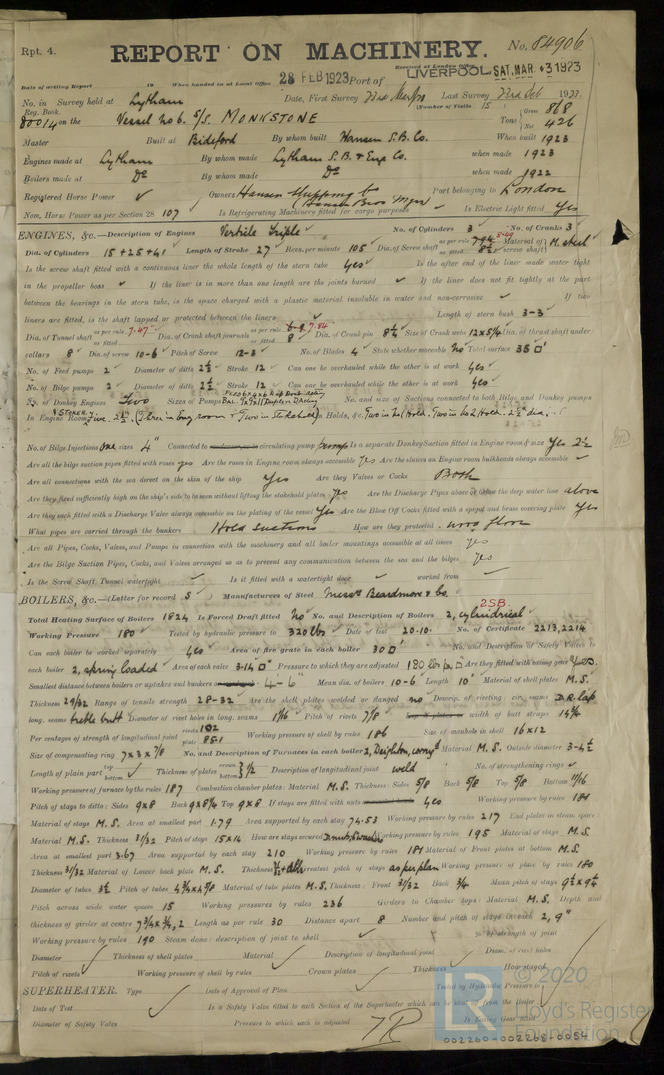 Rpt. 4.
REPORT ON MACHINERY. No. 84906
Received at London Office
Date of writing Report 19 When handed in at Local Office 28 FEB 1923 Port of LIVERPOOL SAT. MAR. 31923
No. in Survey held at Lytham Date, First Survey Last Survey 1923
Reg. Book. (Number of Visits 15
80014 on the Vessel No 6. S/S MONKSTONE Tons Gross 868 Net 426
Master Built at Bideford By whom built Hansen S.B. Co. When built 1923
Engines made at Lytham By whom made Lytham S.B. & Eng Co. when made 1923
Boilers made at Do By whom made Do when made 1922
Registered Horse Power Owners Hansen Shipping Co (Hansen Bros Mgrs) Port belonging to London
Nom. Horse Power as per Section 28 107 Is Refrigerating Machinery fitted for cargo purposes Is Electric Light fitted Yes
ENGINES, &c.—Description of Engines Vertical Triple No. of Cylinders 3 No. of Cranks 3
Dia. of Cylinders 15 + 25 + 41 Length of Stroke 27 Revs. per minute 105 Dia. of Screw shaft as per rule as fitted 8½ Material of screw shaft M. steel
Is the screw shaft fitted with a continuous liner the whole length of the stern tube Yes Is the after end of the liner made water tight
in the propeller boss If the liner is in more than one length are the joints burned If the liner does not fit tightly at the part
between the bearings in the stern tube, is the space charged with a plastic material insoluble in water and non-corrosive If two
liners are fitted, is the shaft lapped or protected between the liners Length of stern bush 3-3
Dia. of Tunnel shaft as per rule 7.47 as fitted Dia. of Crank shaft journals as per rule 7.84 as fitted 8 Dia. of Crank pin 8¼ Size of Crank webs 12 x 5¼ Dia. of thrust shaft under
collars 8 Dia. of screw 10-6 Pitch of Screw 12-3 No. of Blades 4 State whether moveable No Total surface 35 □'
No. of Feed pumps 2 Diameter of ditto 2½ Stroke 12 Can one be overhauled while the other is at work Yes
No. of Bilge pumps 2 Diameter of ditto 2½ Stroke 12 Can one be overhauled while the other is at work Yes
No. of Donkey Engines Two Sizes of Pumps No. and size of Suctions connected to both Bilge and Donkey pumps
In Engine Room & STOKEH. Five. 2½ (Three in Eng room & Two in Stokehold) In Holds, &c. Two in No 1 Hold. Two in No 2 Hold. 2½" dia.
No. of Bilge Injections One sizes 4" Connected to circulating pump Is a separate Donkey Suction fitted in Engine room & size Yes 2½
Are all the bilge suction pipes fitted with roses yes Are the roses in Engine room always accessible Yes Are the sluices on Engine room bulkheads always accessible
Are all connections with the sea direct on the skin of the ship Yes Are they Valves or Cocks Both
Are they fixed sufficiently high on the ship's side to be seen without lifting the stokehold plates yes Are the Discharge Pipes above or below the deep water line above
Are they each fitted with a Discharge Valve always accessible on the plating of the vessel Yes Are the Blow Off Cocks fitted with a spigot and brass covering plate Yes
What pipes are carried through the bunkers Hold Suctions How are they protected wood floor
Are all Pipes, Cocks, Valves, and Pumps in connection with the machinery and all boiler mountings accessible at all times yes
Are the Bilge Suction Pipes, Cocks, and Valves arranged so as to prevent any communication between the sea and the bilges yes
Is the Screw Shaft Tunnel watertight Is it fitted with a watertight door worked from
BOILERS, &c.—(Letter for record S) Manufacturers of Steel Messrs Beardmore & Co.
2SB.
Total Heating Surface of Boilers 1824 Is Forced Draft fitted No No. and Description of Boilers 2, cylindrical
Working Pressure 180 Tested by hydraulic pressure to 320 lbs Date of test 20-10- No. of Certificate 2213, 2214
Can each boiler be worked separately Yes Area of fire grate in each boiler 30 □' No. and Description of Safety Valves to
each boiler 2, spring loaded Area of each valve 3.14 □" Pressure to which they are adjusted 180 lbs p. □ Are they fitted with easing gear Yes.
Smallest distance between boilers or uptakes and bunkers 4-6" Mean dia. of boilers 10-6 Length 10' Material of shell plates M.S.
Thickness 29/32 Range of tensile strength 28-32 Are the shell plates welded or flanged no Descrip. of riveting: cir. seams D.R. lap
long. seams treble butt Diameter of rivet holes in long. seams 1 1/16 Pitch of rivets 7 1/8 width of butt straps 14¾
Per centages of strength of longitudinal joint rivets 102 plate 85.1 Working pressure of shell by rules 186 Size of manhole in shell 16 x 12
Size of compensating ring 7 x 3 x 7/8 No. and Description of Furnaces in each boiler 2, Deighton, corrug Material M.S. Outside diameter 3-4½
Length of plain part top bottom Thickness of plates crown bottom ½ Description of longitudinal joint weld No. of strengthening rings
Working pressure of furnace by the rules 187 Combustion chamber plates: Material M.S. Thickness: Sides 5/8 Back 5/8 Top 5/8 Bottom 11/16
Pitch of stays to ditto: Sides 9x8 Back 9x8¼ Top 9x8 If stays are fitted with nuts Yes Working pressure by rules 181
Material of stays M.S. Area at smallest part 1.79 Area supported by each stay 74.53 Working pressure by rules 217 End plates in steam space
Material M.S. Thickness 31/32 Pitch of stays 15 x 14 How are stays secured D. nuts & washers Working pressure by rules 195 Material of stays M.S.
Area at smallest part 3.67 Area supported by each stay 210 Working pressure by rules 181 Material of Front plates at bottom M.S.
Thickness 31/32 Material of Lower back plate M.S. Thickness Greatest pitch of stays as per plan Working pressure of plate by rules 180
Diameter of tubes 3½ Pitch of tubes Material of tube plates M.S. Thickness: Front 31/32 Back ¾ Mean pitch of stays
Pitch across wide water spaces 15 Working pressures by rules 236 Girders to Chamber tops: Material M.S. Depth and
thickness of girder at centre 7¾ x ¾, 2 Length as per rule 30 Distance apart 8 Number and pitch of stays in each 2, 9"
Working pressure by rules 190 Steam dome: description of joint to shell % of strength of joint
Diameter Thickness of shell plates Material Description of longitudinal joint Diam. of rivet holes
Pitch of rivets Working pressure of shell by rules Crown plates Thickness How stayed
SUPERHEATER. Type Date of Approval of Plan Tested by Hydraulic Pressure to
Date of Test Is a Safety Valve fitted to each Section of the Superheater which can be shut off from the Boiler
Diameter of Safety Valve Pressure to which each is adjusted Is Easing Gear fitted
© 2020
LR
Lloyd's Register
Foundation
002260-002268-0054